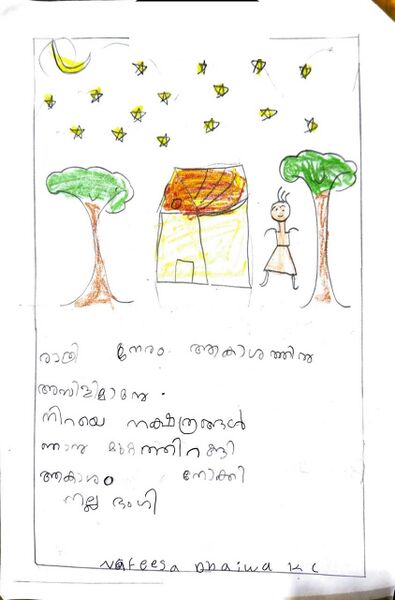 രാത്രി നേരം ആകാശത്തിനു
അമ്പിളിമാനേ .
നിറയെ നക്ഷത്രങ്ങൾ
ഞാനു മുറ്റത്തിറങ്ങി
ആകാശം നോക്കി
നില്ല ഭംഗി
Nafeesa Dhaiwa K C